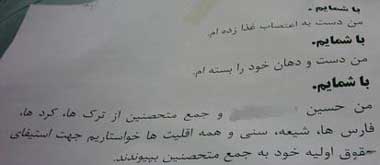 با شمایم.
من دست به اعتصاب غذا زده ام.
با شمایم.
من دست و دهان خود را بسته ام.
با شمایم.
من حسین و جمع متحصنین از ترک ها، کرد ها،
فارس ها، شیعه، سنی و همه اقلیت ها خواستاریم جهت استیفای
حقوق اولیه خود به جمع متحصنین بپیوندند.